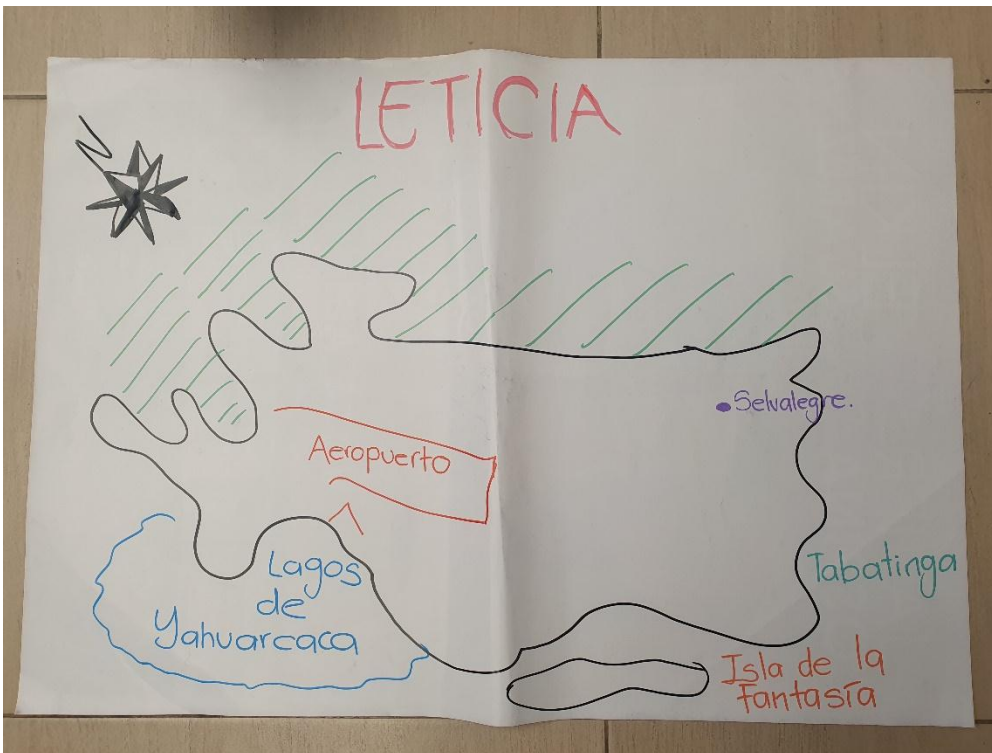 LETICIA
• Selvalegre.
Aeropuerto
Tabatinga
Lagos
de
Yahuarcaca
Isla de la
Fantasía